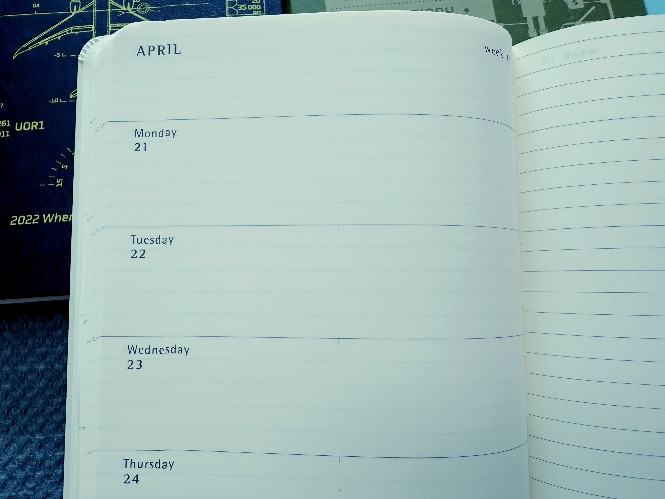 APRIL
week
Monday
21
Tuesday
22
Wednesday
23
Thursday
24
UOR1
2022 When
35 000